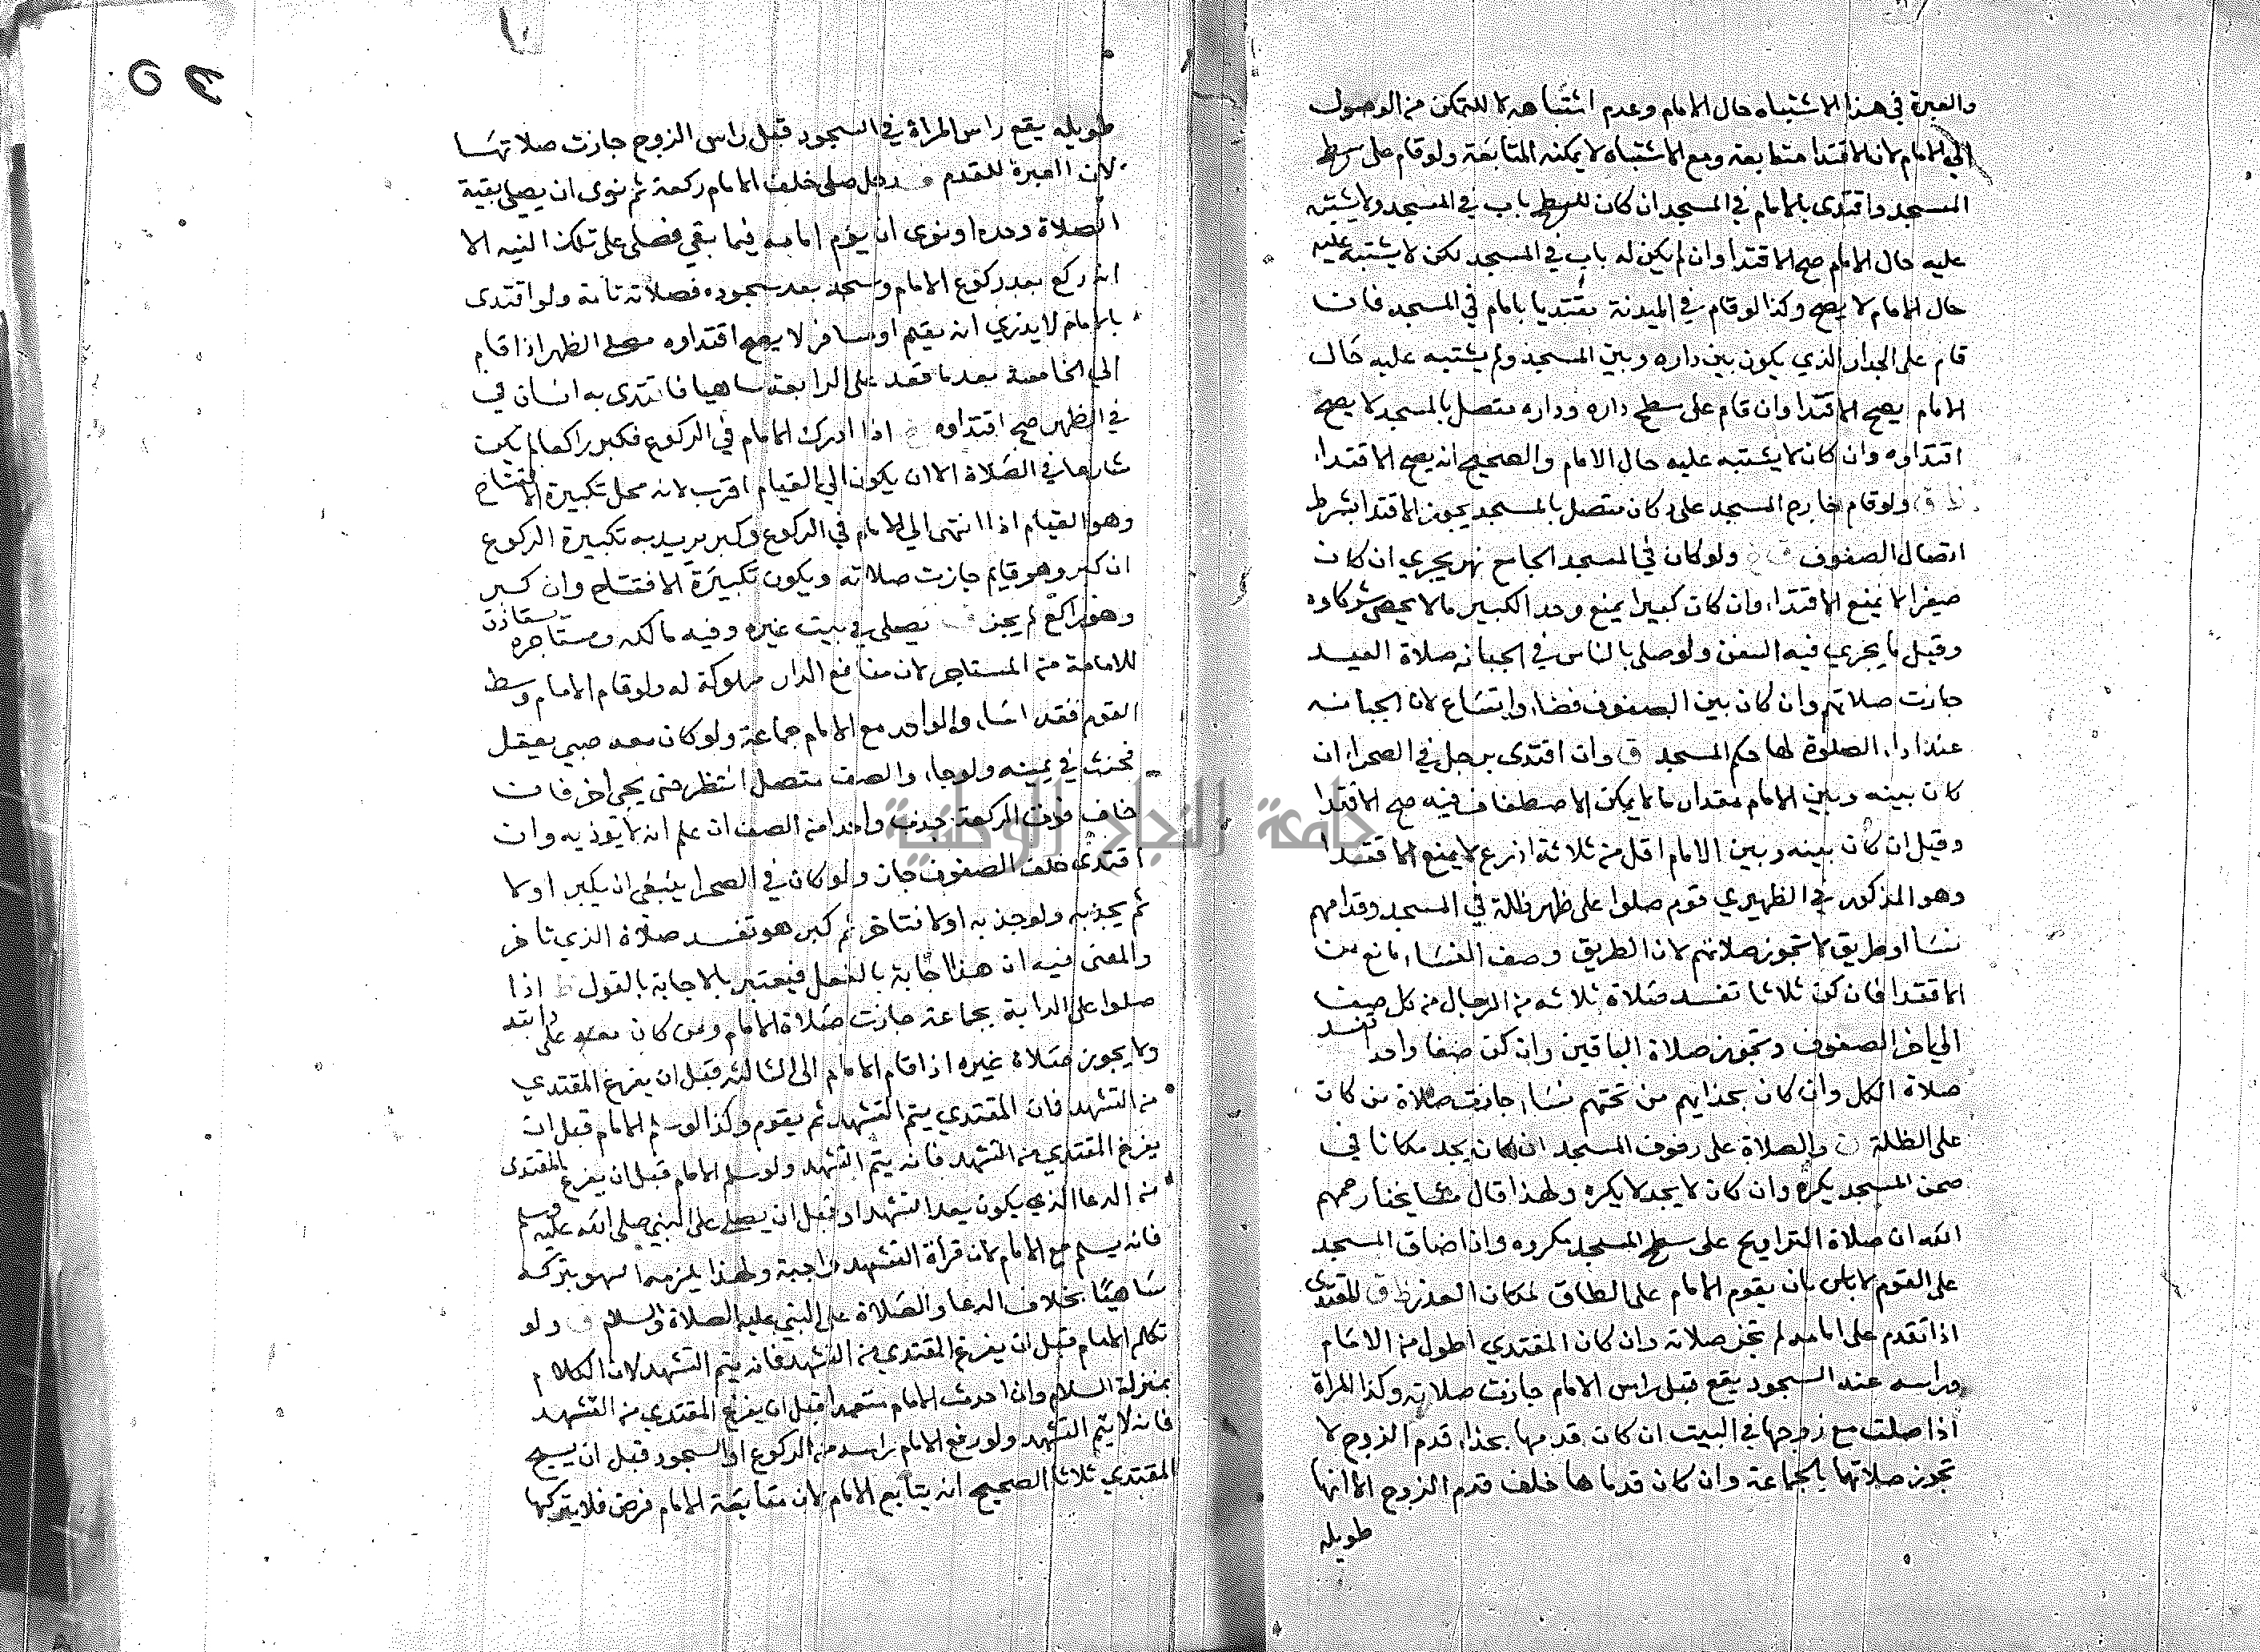 والعبرة في هذا الاشتباه حال الامام وعدم اشتباهه لا للتمكن من الوصول
الي الامام لان الاقتدا متابعة ومع الاشتباه لا يمكنه المتابعة ولو قام على سطح
المسجد واقتدى بالامام في المسجد ان كان للسطح باب في المسجد ولا يشتبه
عليه حال الامام صح الاقتدا وان لم يكن له باب في المسجد لكن لا يشتبه عليه
حال الامام لا يصح وكذا لو قام في الميدنة مقتديا بامام في المسجد فان
قام على الجدار الذي يكون بين داره وبين المسجد ولم يشتبه عليه حال
الامام يصح الاقتدا وان قام على سطح داره وداره متصل بالمسجد لا يصح
اقتداوه وان كان لا يشتبه عليه حال الامام والصحيح انه يصح الاقتداء
ولو قام خارج المسجد على دكان متصل بالمسجد يجوز الاقتدا بشرط
اتصال الصفوف ولو كان في المسجد الجامع نهر يجري ان كان
صغيرا لا يمنع الاقتداء وان كان كبيرا يمنع وحد الكبير ما لا يحصى شركاوه
وقيل ما يجري فيه السفن ولو صلى بالناس في الجبانه صلاة العيد
جازت صلاتهم وان كان بين الصفوف فضاء واتساع لان الجبانه
عند اداء الصلوة لها حكم المسجد ق وان اقتدى برجل في الصحرا ان
كان بينه وبين الامام مقدار ما لا يمكن الاصطفاف فيه صح الاقتدا
وقيل ان كان بينه وبين الامام اقل من ثلاثة اذرع لا يمنع الاقتدا
وهو المذكور في الظهيري قوم صلوا على ظهر ظلة في المسجد وقدامهم
نسا او طريق لا تجوز صلاتهم لان الطريق وصف النساء مانع من
الاقتدا فان كن ثلاثا تفسد صلاة ثلاثه من الرجال من كل صف
الي اخر الصفوف وتجوز صلاة الباقين وان كن صفا واحد تفسد
صلاة الكل وان كان بحذايهم من تحتهم نساء جازت صلاة من كان
على الظلة والصلاة على رفوف المسجد ان كان يجد مكانا في
صحن المسجد يكره وان كان لا يجد لا يكره ولهذا قال مشايخنا رحمهم
الله ان صلاة التراويح على سطح المسجد مكروه واذا ضاق المسجد
على القوم لا باس بان يقوم الامام على الطاق لمكان العذر ق المقتدى
اذا تقدم على امامه لم تجز صلاته وان كان المقتدي اطول من الامام
وراسه عند السجود يقع قبل راس الامام جازت صلاته وكذا المراة
اذا صلت مع زوجها في البيت ان كان قدمها بحذاء قدم الزوج لا
تجوز صلاتها بالجماعة وان كان قدماها خلف قدم الزوج الا انها
طويله
طويله يقع راس المراة في السجود قبل راس الزوج جازت صلاتها
لان العبرة للقدم رجل صلى خلف الامام ركعة ثم نوى ان يصلي بقية
الصلاة وحده او نوى ان يؤم امامه فيما بقي فصلى على تلك النيه الا
انه ركع بعد ركوع الامام وسجد بعد سجوده فصلاته تامة ولو اقتدى
بالامام لا يدري انه مقيم او مسافر لا يصح اقتداوه مصلي الظهر اذا قام
الي الخامسة بعد ما قعد على الرابعة ساهيا فاقتدى به انسان في
في الظهر صح اقتداوه اذا ادرك الامام في الركوع فكبر راكعا لم يكن
شارعا في الصلاة الا ان يكون الي القيام اقرب لانه محل تكبيرة الافتتاح
وهو القيام اذا انتهى الي الامام في الركوع وكبر يريد به تكبيرة الركوع
ان كبر وهو قايم جازت صلاته ويكون تكبيرة الافتتاح وان كبر
وهو راكع لم يجز يصلي في بيت غيره وفيه مالكه ومستاجره يستاذن
للامامة من المستاجر لان منافع الدار مملوكة له ولو قام الامام وسط
القوم فقد اساء والواحد مع الامام جماعة ولو كان معه صبي يعقل
فحنث في يمينه ولو جاء والصف متصل انتظر حتى يجي اخر فان
خاف فوت الركعة جذب واحدا من الصف ان علم انه لا يوذيه وان
اقتدى خلف الصفوف جاز ولو كان في الصحرا ينبغي ان يكبر اولا
ثم يجذبه ولو جذبه اولا فتاخر ثم كبر هو تفسد صلاة الذي تاخر
والمعنى فيه ان هذا اجابة بالفعل فيعتبر بالاجابة بالقول ظ اذا
صلوا على الدابة بجماعة جازت صلاة الامام ومن كان معه على دابته
ولا يجوز صلاة غيره اذا قام الامام الى الثالثه قبل ان يفرغ المقتدي
من التشهد فان المقتدي يتم التشهد ثم يقوم وكذا لو سلم الامام قبل ان
يفرغ المقتدي من التشهد فانه يتم التشهد ولو سلم الامام قبل ان يفرغ المقتدى
من الدعا الذي يكون بعد التشهد او قبل ان يصلي على النبي صلى الله عليه وسلم
فانه يسلم مع الامام لان قراة التشهد واجبة ولهذا يلزمه السهو بتركه
ساهيا بخلاف الدعا والصلاة على النبي عليه الصلاة والسلام ق ولو
تكلم الامام قبل ان يفرغ المقتدي من التشهد فانه يتم التشهد لان الكلام
بمنزلة السلام وان احدث الامام متعمدا قبل ان يفرغ المقتدي من التشهد
فانه لا يتم التشهد ولو رفع الامام راسه من الركوع او السجود قبل ان يسبح
المقتدي ثلاثا الصحيح انه يتابع الامام لان متابعة الامام فرض فلا يتركها
جامعة النجاح الوطنية